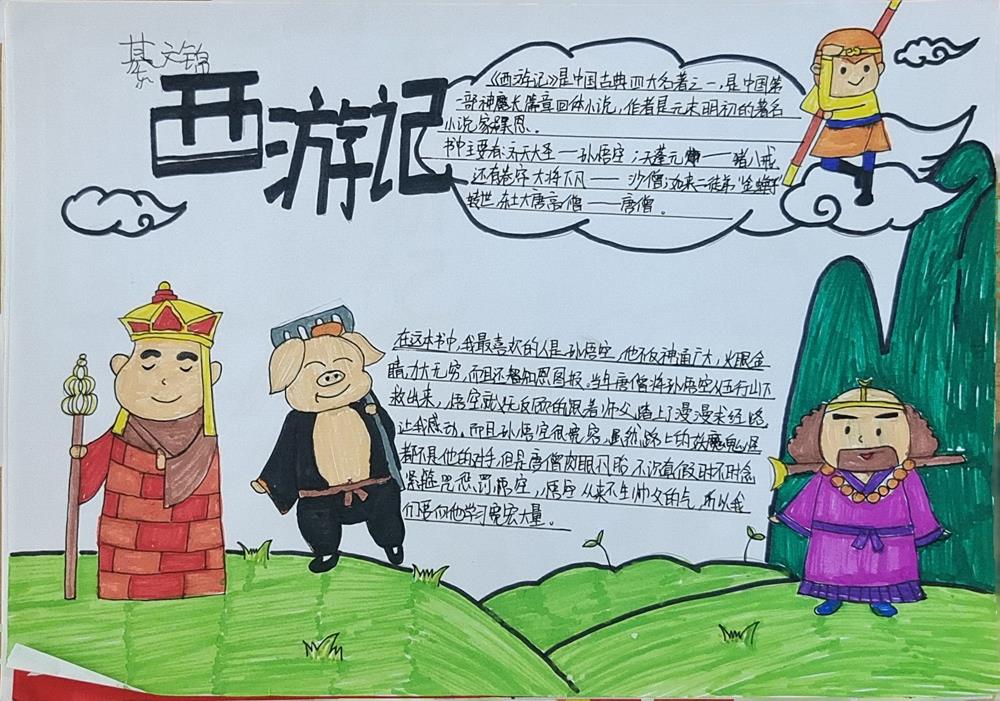 綦文锦
西游记
《西游记》是中国古典四大名著之一,是中国第
一部神魔长篇章回体小说,作者是元末明初的著名
小说家吴承恩。
书中主要有:齐天大圣——孙悟空;天蓬元帅——猪八戒
还有卷帘大将下凡——沙僧;如来二徒弟"金蝉子"
转世,东土大唐高僧——唐僧。
在这本书中,我最喜欢的人是孙悟空,他不仅神通广大,火眼金
睛,力大无穷,而且还知恩图报,当年唐僧将孙悟空从五行山下
救出来,悟空就义无反顾的跟着师父踏上了漫漫求经路
让我感动。而且孙悟空很宽容,虽然路上的妖魔鬼怪
都不是他的对手,但是唐僧肉眼凡胎,不识真假,时不时念
紧箍咒惩罚悟空,悟空从来不生师父的气,所以我
们要向他学习宽宏大量。